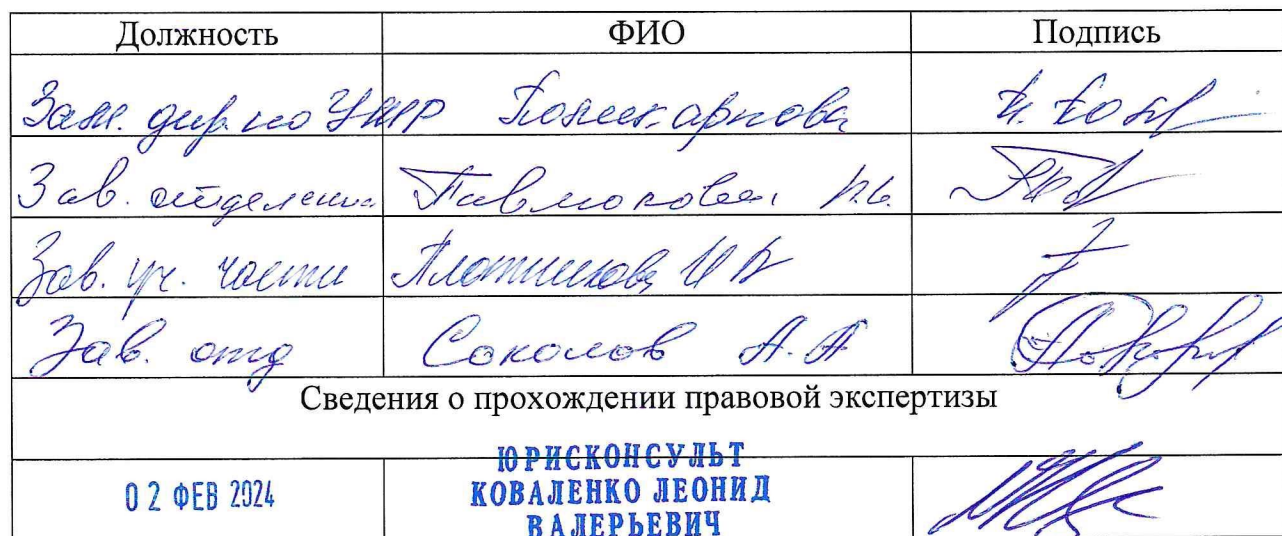 Должность ФИО Подпись
Зам. дир. по УМР Поликарпова
Зав. отделения
Зав. уч. части Плотникова И В
Зав. отд Соколов А. А
Сведения о прохождении правовой экспертизы
ЮРИСКОНСУЛЬТ
02 ФЕВ 2024 КОВАЛЕНКО ЛЕОНИД
ВАЛЕРЬЕВИЧ